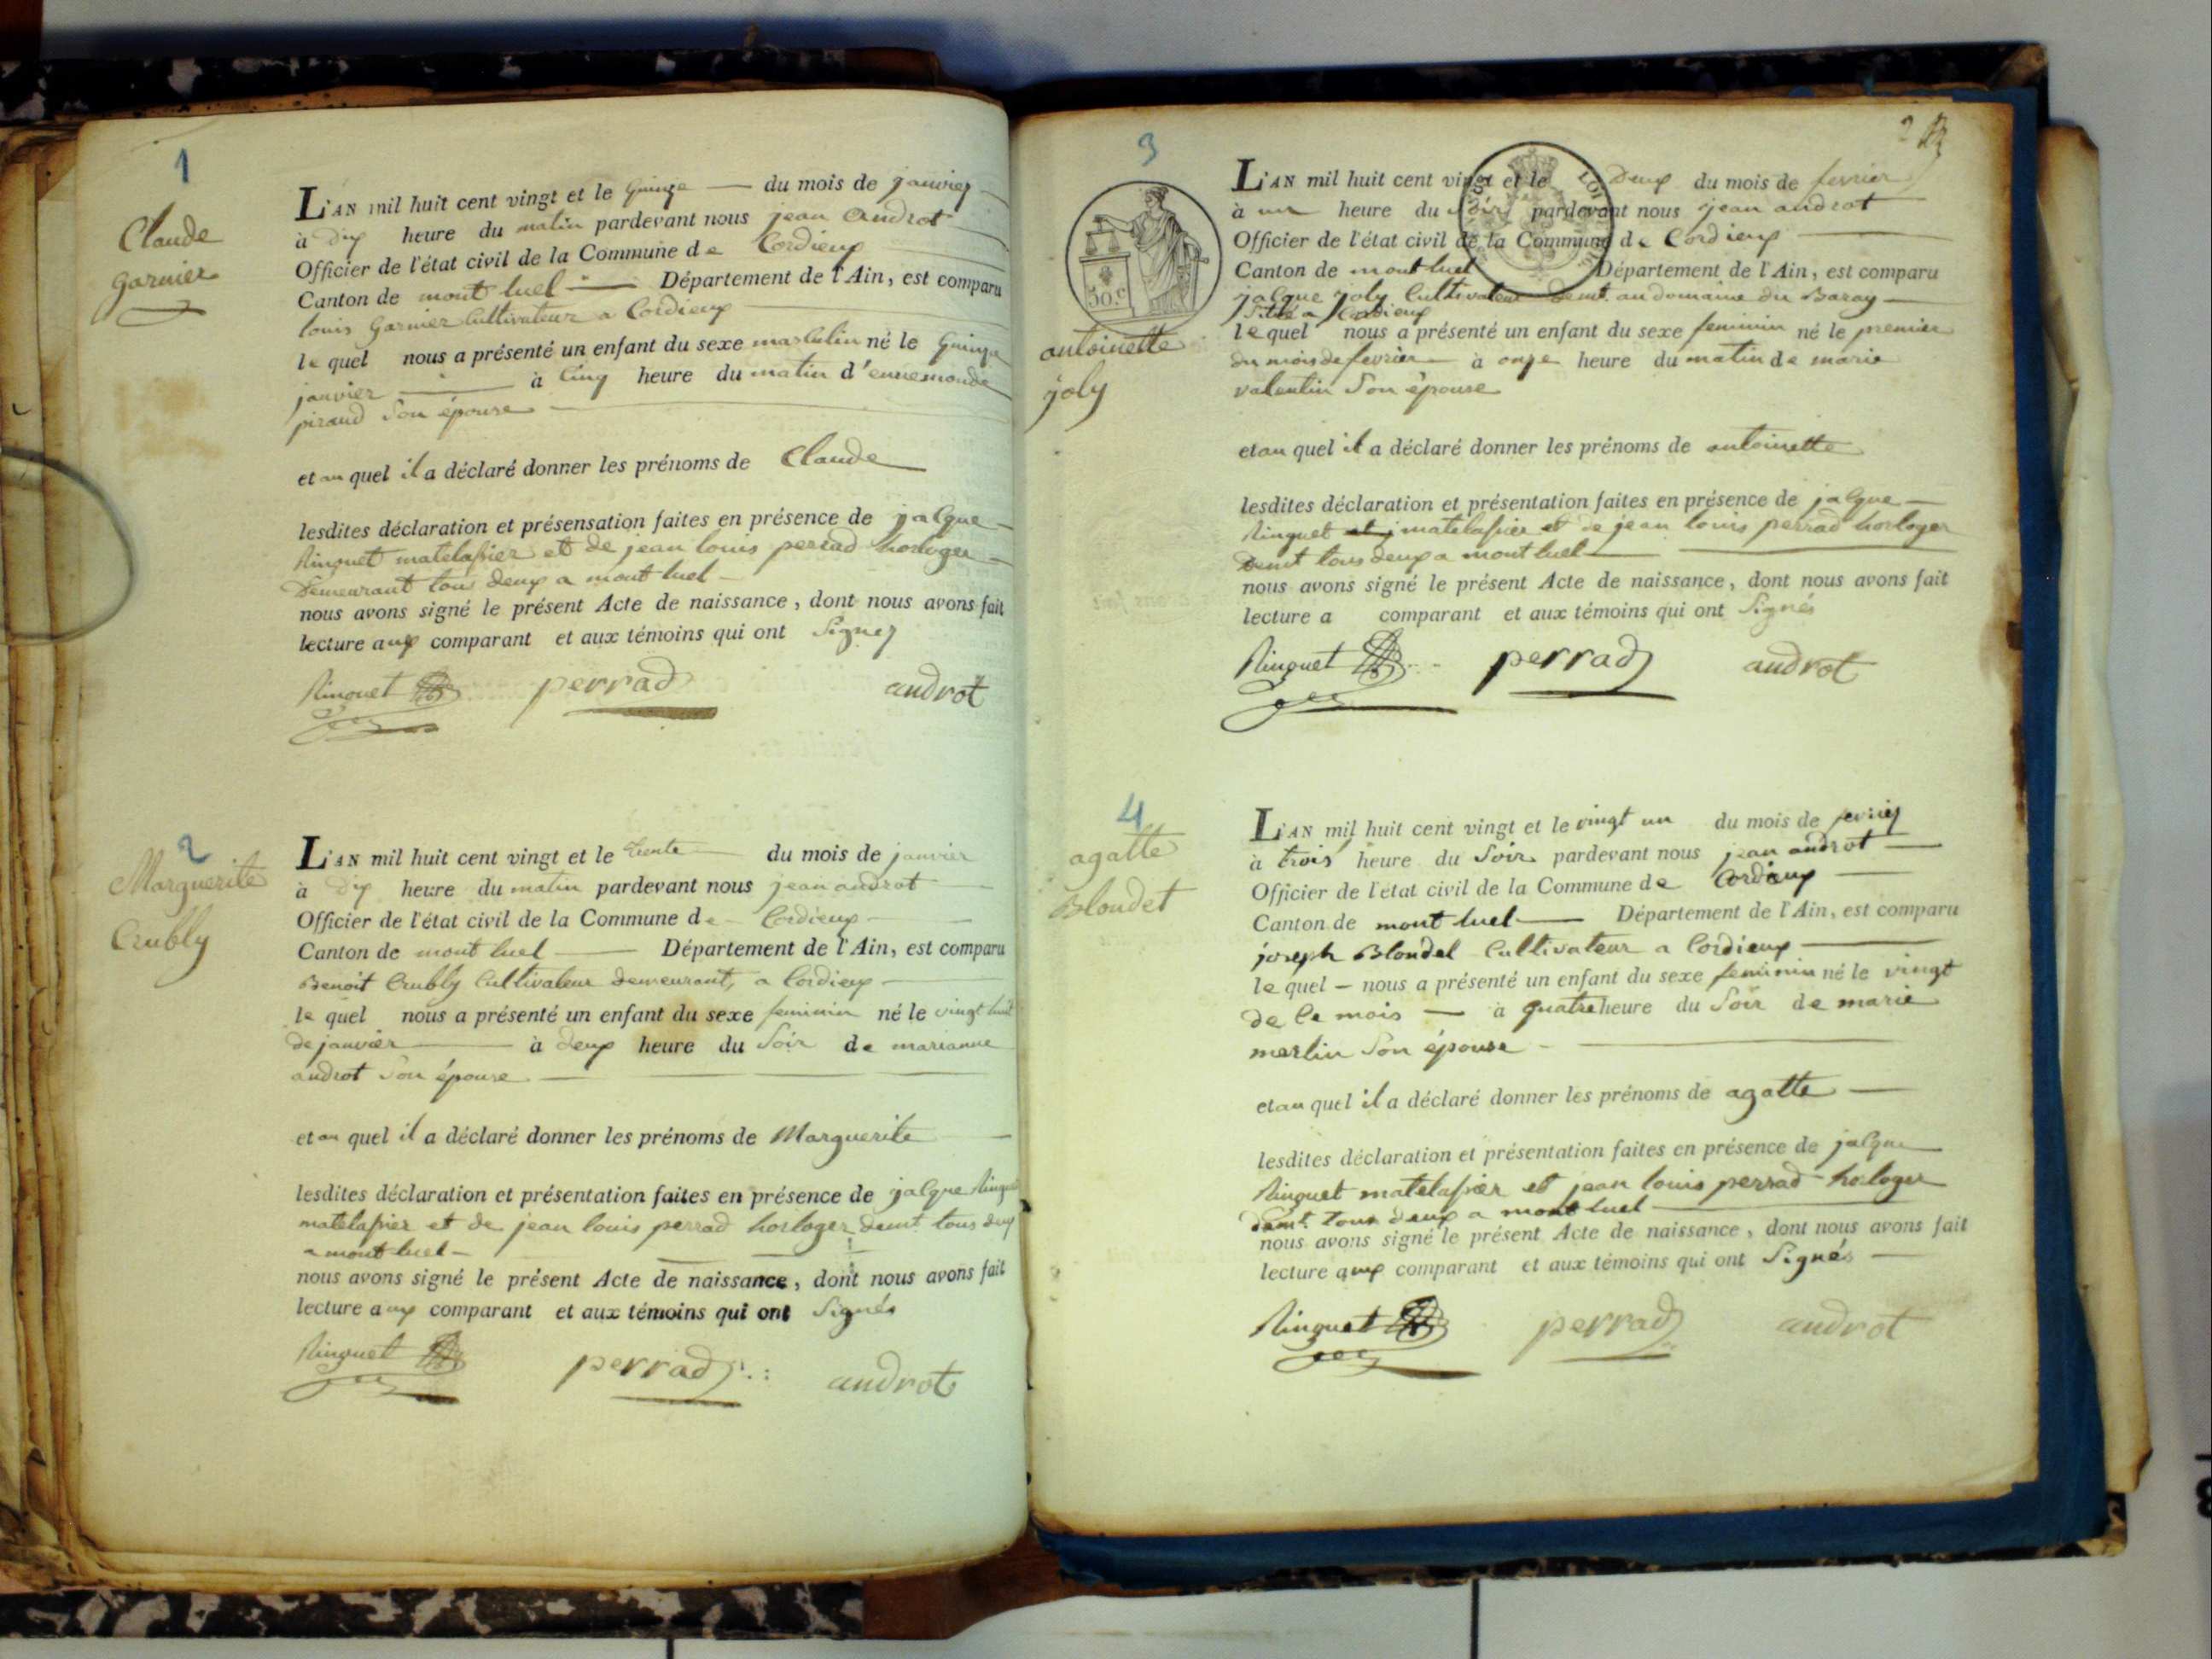 1
Claude
garnier
L'AN mil huit cent vingt et le quinze du mois de janvier
à dix heure du matin pardevant nous jean androt
Officier de l'état civil de la Commune de Cordieux
Canton de mont luel Département de l'Ain, est comparu
louis garnier Cultivateur a Cordieux
lequel nous a présenté un enfant du sexe masculin né le quinze
janvier à cinq heure du matin d'ennemonde
piraud son épouse
et au quel il a déclaré donner les prénoms de Claude
lesdites déclaration et présensation faites en présence de jacque
Rinquet matelassier et de jean louis perrad horloger
demeurant tous deux a mont luel
nous avons signé le présent Acte de naissance, dont nous avons fait
lecture aux comparant et aux témoins qui ont signez
Rinquet perrad androt
2
Marguerite
Crubly
L'AN mil huit cent vingt et le trente du mois de janvier
à dix heure du matin pardevant nous jean androt
Officier de l'état civil de la Commune de Cordieux
Canton de mont luel Département de l'Ain, est comparu
Benoit Crubly Cultivateur demeurant, a Cordieux
lequel nous a présenté un enfant du sexe feminin né le vingt huit
de janvier à deux heure du soir de marianne
androt son épouse
et au quel il a déclaré donner les prénoms de Marguerite
lesdites déclaration et présentation faites en présence de jacque Rinquet
matelassier et de jean louis perrad horloger demt tous deux
a mont luel
nous avons signé le présent Acte de naissance, dont nous avons fait
lecture aux comparant et aux témoins qui ont signés
Rinquet perrad androt
3
50 c
antoinette
joly
L'AN mil huit cent vingt et le deux du mois de fevrier
à un heure du soir pardevant nous jean androt
Officier de l'état civil de la Commune de Cordieux
Canton de mont luel Département de l'Ain, est comparu
jacque joly Cultivateur demt au domaine du Baray
situé a Cordieux
lequel nous a présenté un enfant du sexe feminin né le premier
du mois de fevrier à onze heure du matin de marie
valentin son épouse
et au quel il a déclaré donner les prénoms de antoinette
lesdites déclaration et présentation faites en présence de jacque
Rinquet matelassier et de jean louis perrad horloger
demt tous deux a mont luel
nous avons signé le présent Acte de naissance, dont nous avons fait
lecture a comparant et aux témoins qui ont signés
Rinquet perrad androt
4
agatte
Blondet
L'AN mil huit cent vingt et le vingt un du mois de fevrier
à trois heure du soir pardevant nous jean androt
Officier de l'état civil de la Commune de Cordieux
Canton de mont luel Département de l'Ain, est comparu
joseph Blondel Cultivateur a Cordieux
lequel nous a présenté un enfant du sexe feminin né le vingt
de ce mois à quatre heure du soir de marie
merlin son épouse
et au quel il a déclaré donner les prénoms de agatte
lesdites déclaration et présentation faites en présence de jacque
Rinquet matelassier et jean louis perrad horloger
demt. tous deux a mont luel
nous avons signé le présent Acte de naissance, dont nous avons fait
lecture aux comparant et aux témoins qui ont signés
Rinquet perrad androt